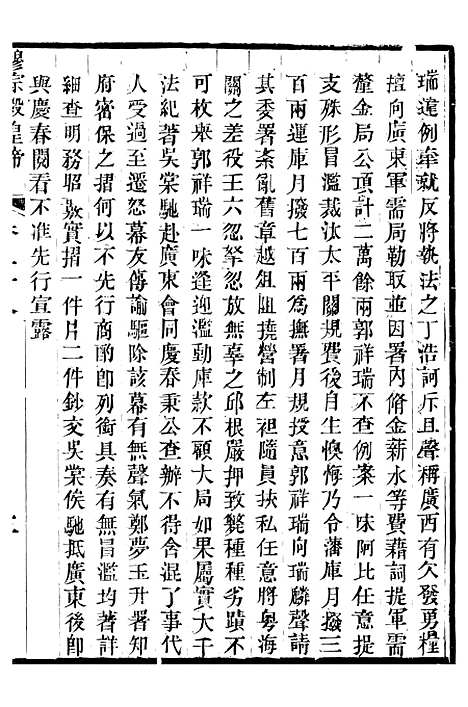 瑞違例牽就反將執法之丁浩訶斥且聲稱廣西有欠發勇糧
擅向廣東軍需局勒取並因署內脩金薪水等費藉詞提軍需
釐金局公項計二萬餘兩郭祥瑞不查例案一味阿比任意提
支殊形冒濫裁汰太平關規費後自生懊悔乃令藩庫月撥三
百兩運庫月撥七百兩為撫署月規授意郭祥瑞向瑞麟聲請
其委署紊亂舊章越俎阻撓營制左袒隨員挾私任意將粵海
關之差役王六忽拏忽放無辜之邱根嚴押致斃種種劣蹟不
可枚舉郭祥瑞一味逢迎濫動庫款不顧大局如果屬實大干
法紀著吳棠馳赴廣東會同慶春秉公查辦不得含混了事代
人受過至遷怒幕友傳諭驅除該幕有無聲氣鄭夢玉升署知
府密保之摺何以不先行商酌卽列銜具奏有無冒濫均著詳
細查明務昭覈實摺一件片二件鈔交吳棠俟馳抵廣東後卽
與慶春閱看不准先行宣露
穆宗毅皇帝